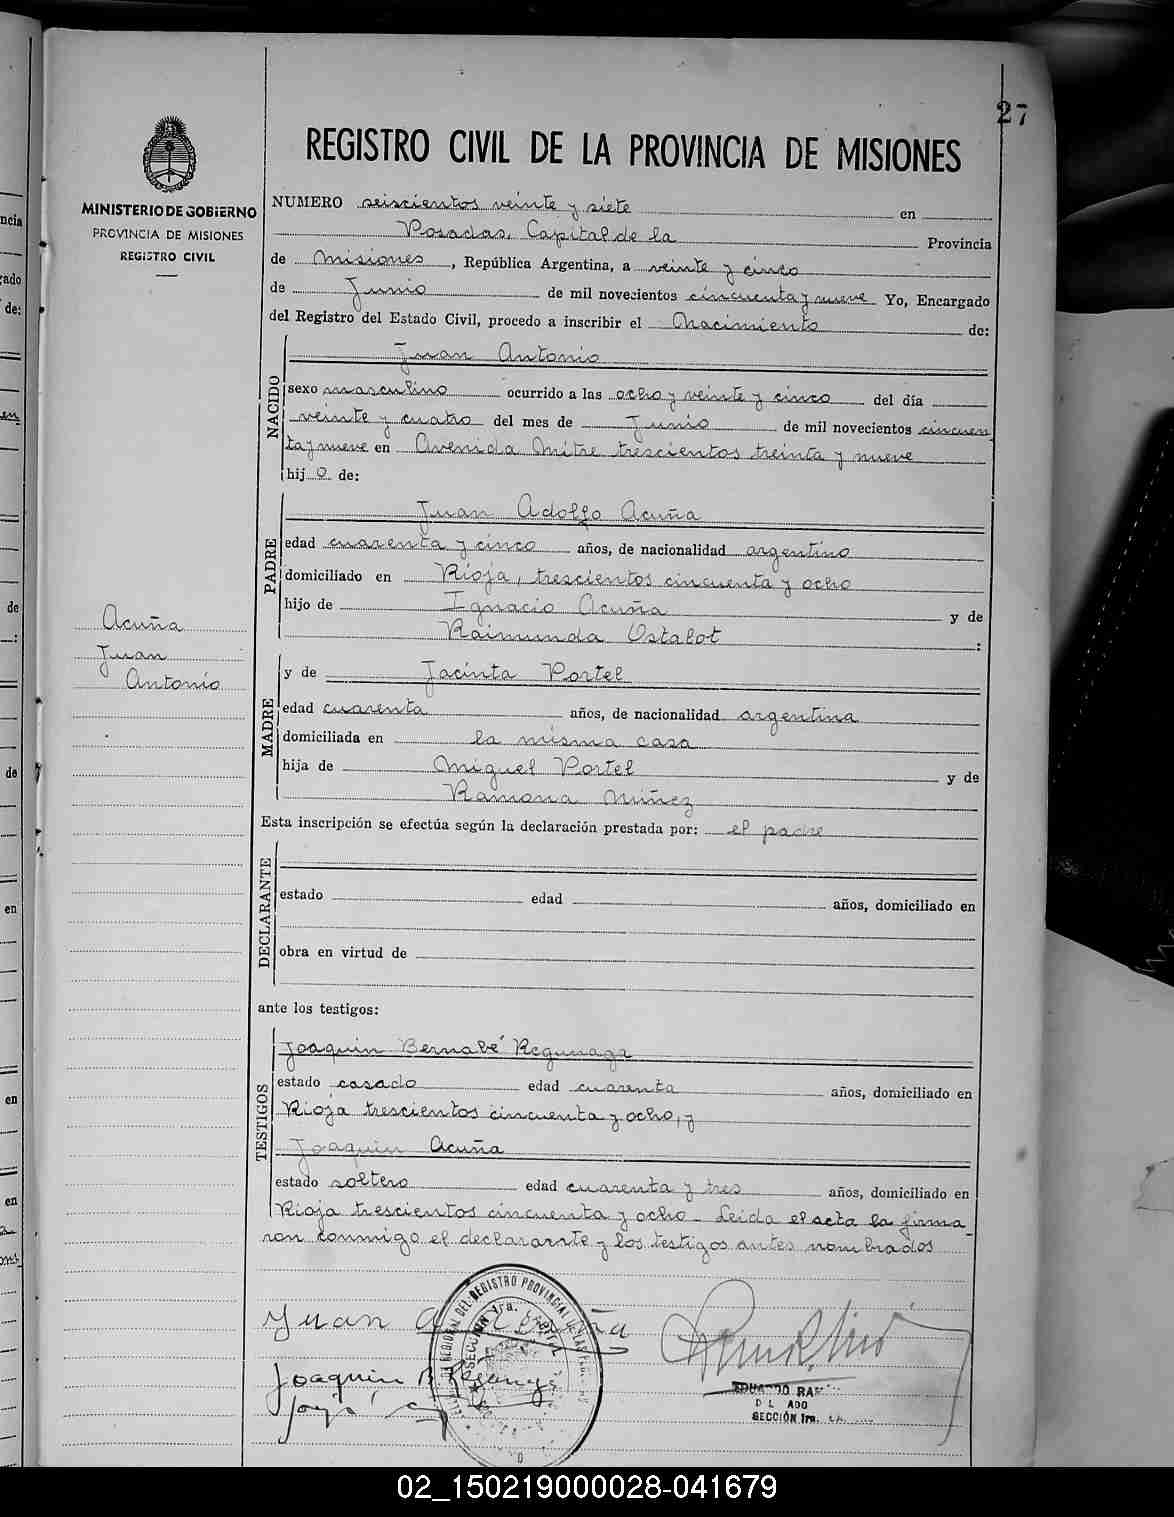 27
REGISTRO CIVIL DE LA PROVINCIA DE MISIONES
MINISTERIO DE GOBIERNO
PROVINCIA DE MISIONES
REGISTRO CIVIL
NUMERO seiscientos veinte y siete en
Posadas, Capital de la Provincia
de Misiones, República Argentina, a veinte y cinco
de Junio de mil novecientos cincuenta y nueve Yo, Encargado
del Registro del Estado Civil, procedo a inscribir el Nacimiento de:
NACIDO
Juan Antonio
sexo masculino ocurrido a las ocho y veinte y cinco del día
veinte y cuatro del mes de Junio de mil novecientos cincuen
ta y nueve en Avenida Mitre trescientos treinta y nueve
hijo de:
PADRE
Juan Adolfo Acuña
edad cuarenta y cinco años, de nacionalidad argentino
domiciliado en Rioja, trescientos cincuenta y ocho
hijo de Ignacio Acuña y de
Raimunda Ostabot :
Acuña
Juan
Antonio
MADRE
y de Jacinta Portel
edad cuarenta años, de nacionalidad argentina
domiciliada en la misma casa
hija de Miguel Portel y de
Ramona Núñez
Esta inscripción se efectúa según la declaración prestada por: el padre
DECLARANTE
estado edad años, domiciliado en
obra en virtud de
ante los testigos:
TESTIGOS
Joaquin Bernabé Regunaga
estado casado edad cuarenta años, domiciliado en
Rioja trescientos cincuenta y ocho, y
Joaquin Acuña
estado soltero edad cuarenta y tres años, domiciliado en
Rioja trescientos cincuenta y ocho - Leida el acta la firma
ron conmigo el declarante y los testigos antes nombrados
Juan A. Acuña
Joaquin B Regunaga
REGIONAL DEL REGISTRO PROVINCIAL DE LAS PERSONAS
SECCION 1ra.
EDUARDO
SECCIÓN 1ra.
02_150219000028-041679